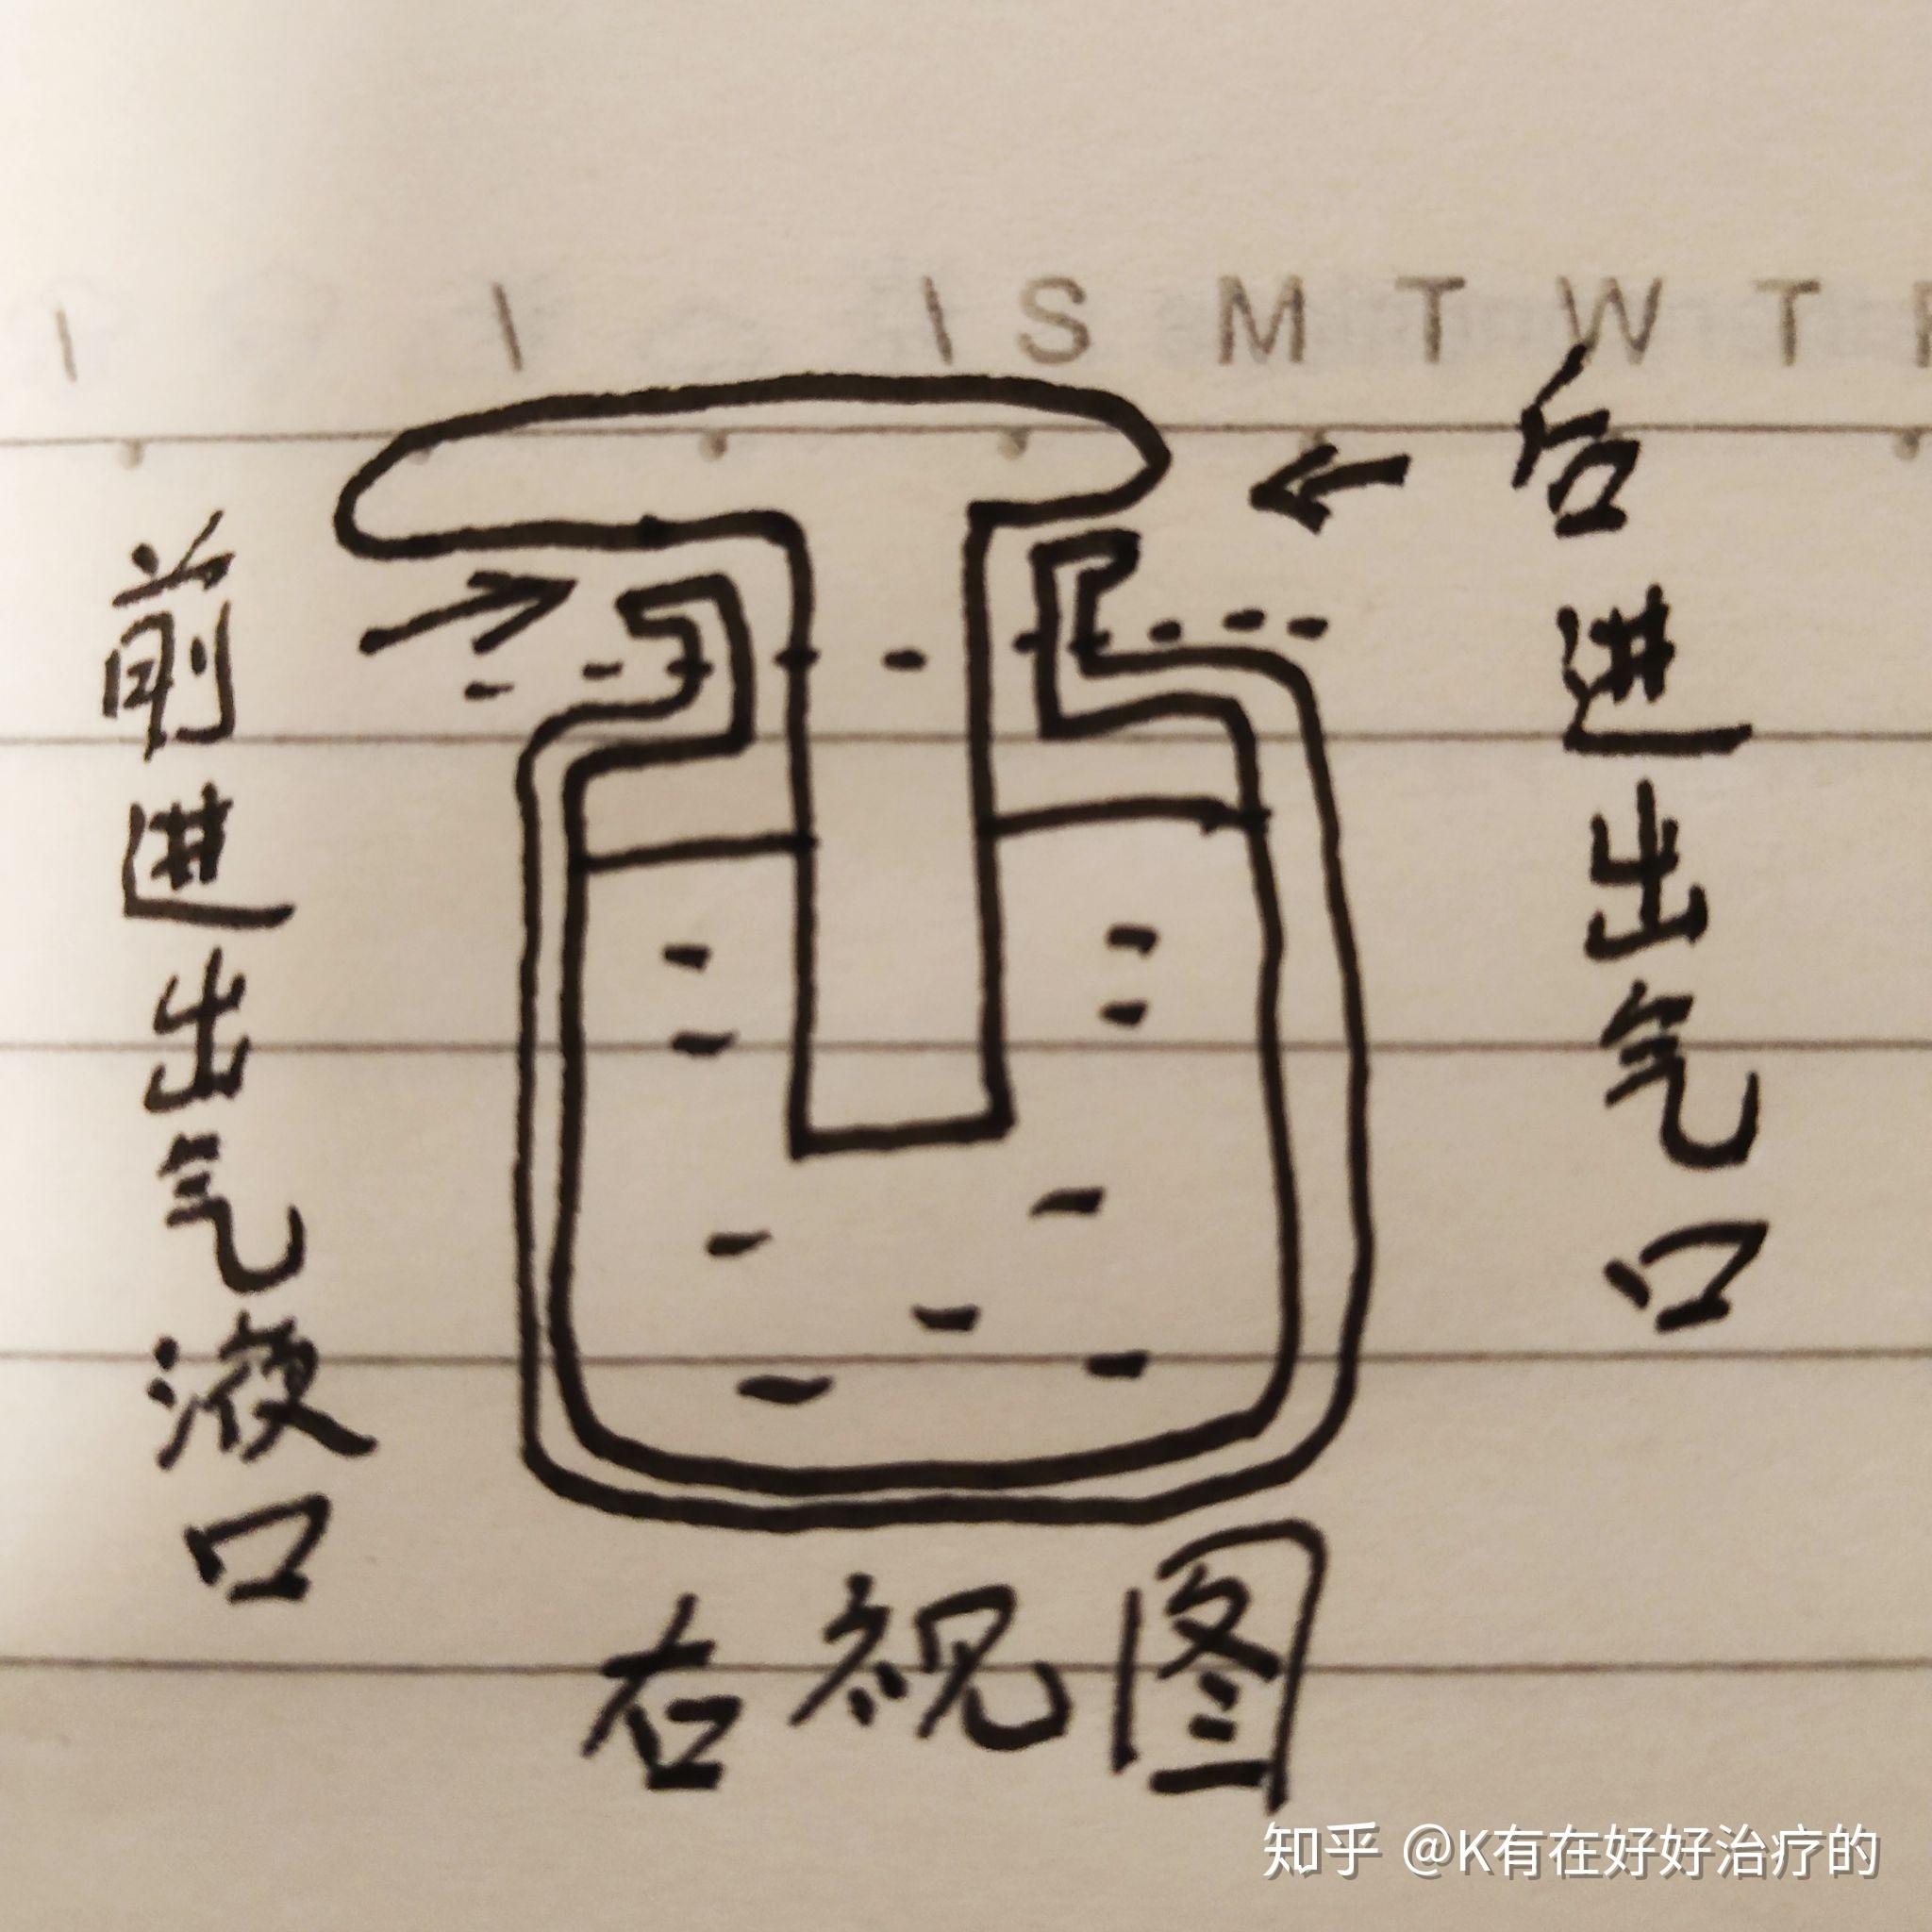 S M T W T
前进出气液口
后进出气口
右视图
知乎 @K有在好好治疗的